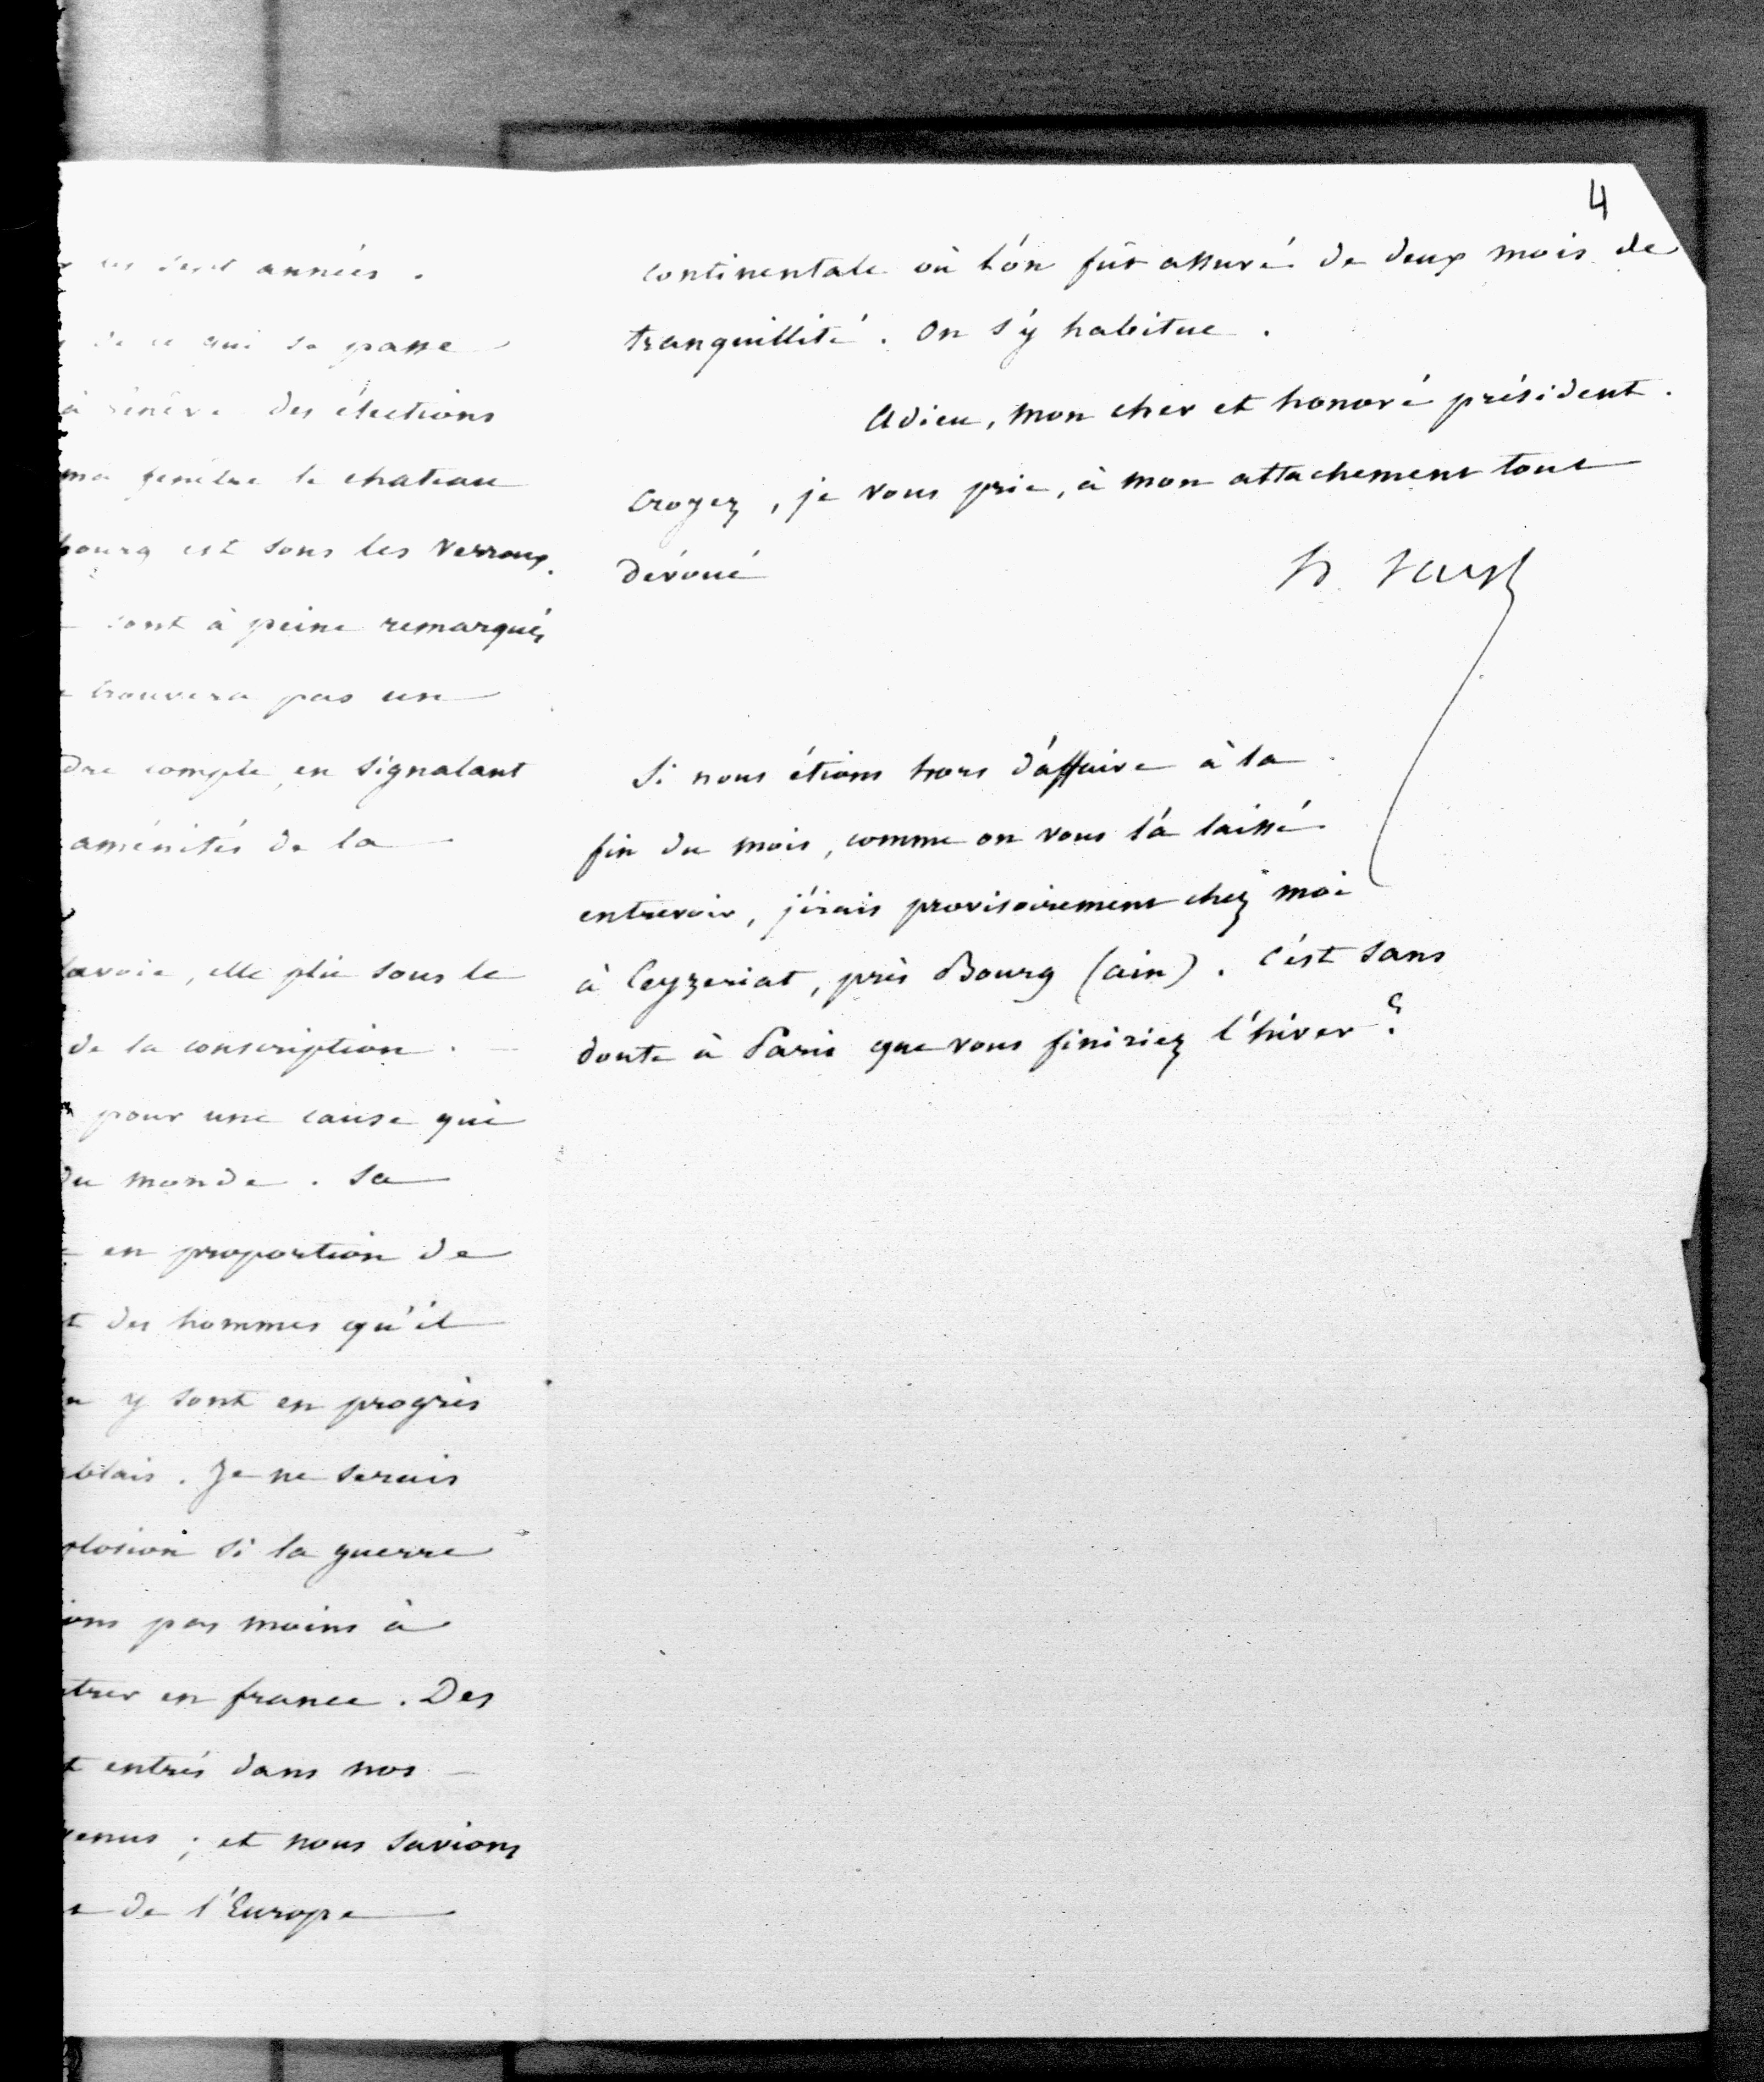 années.
qui se passe
des élections
ma fenêtre le chateau
bourg est sous les verroux.
sont à peine remarqués
trouvera pas un
dre compte, en signalant
aménités de la
Savoie, elle plie sous le
de la conscription. —
pour une cause qui
du monde. Sa
en proportion de
des hommes qu'il
y sont en progrès
blais. Je ne serais
plosion si la guerre
ions pas moins à
trer en france. Des
entrés dans nos
venus ; et nous savions
de l'Europe
4
continentale où l'on fût assuré de deux mois de
tranquillité. On s'y habitue.
Adieu, mon cher et honoré président.
Croyez, je vous prie, à mon attachement tout
dévoué
Si nous étions hors d'affaire à la
fin du mois, comme on vous l'a laissé
entrevoir, j'irais provisoirement chez moi
à Ceyzeriat, près Bourg (ain). C'est sans
doute à Paris que vous finiriez l'hiver ?